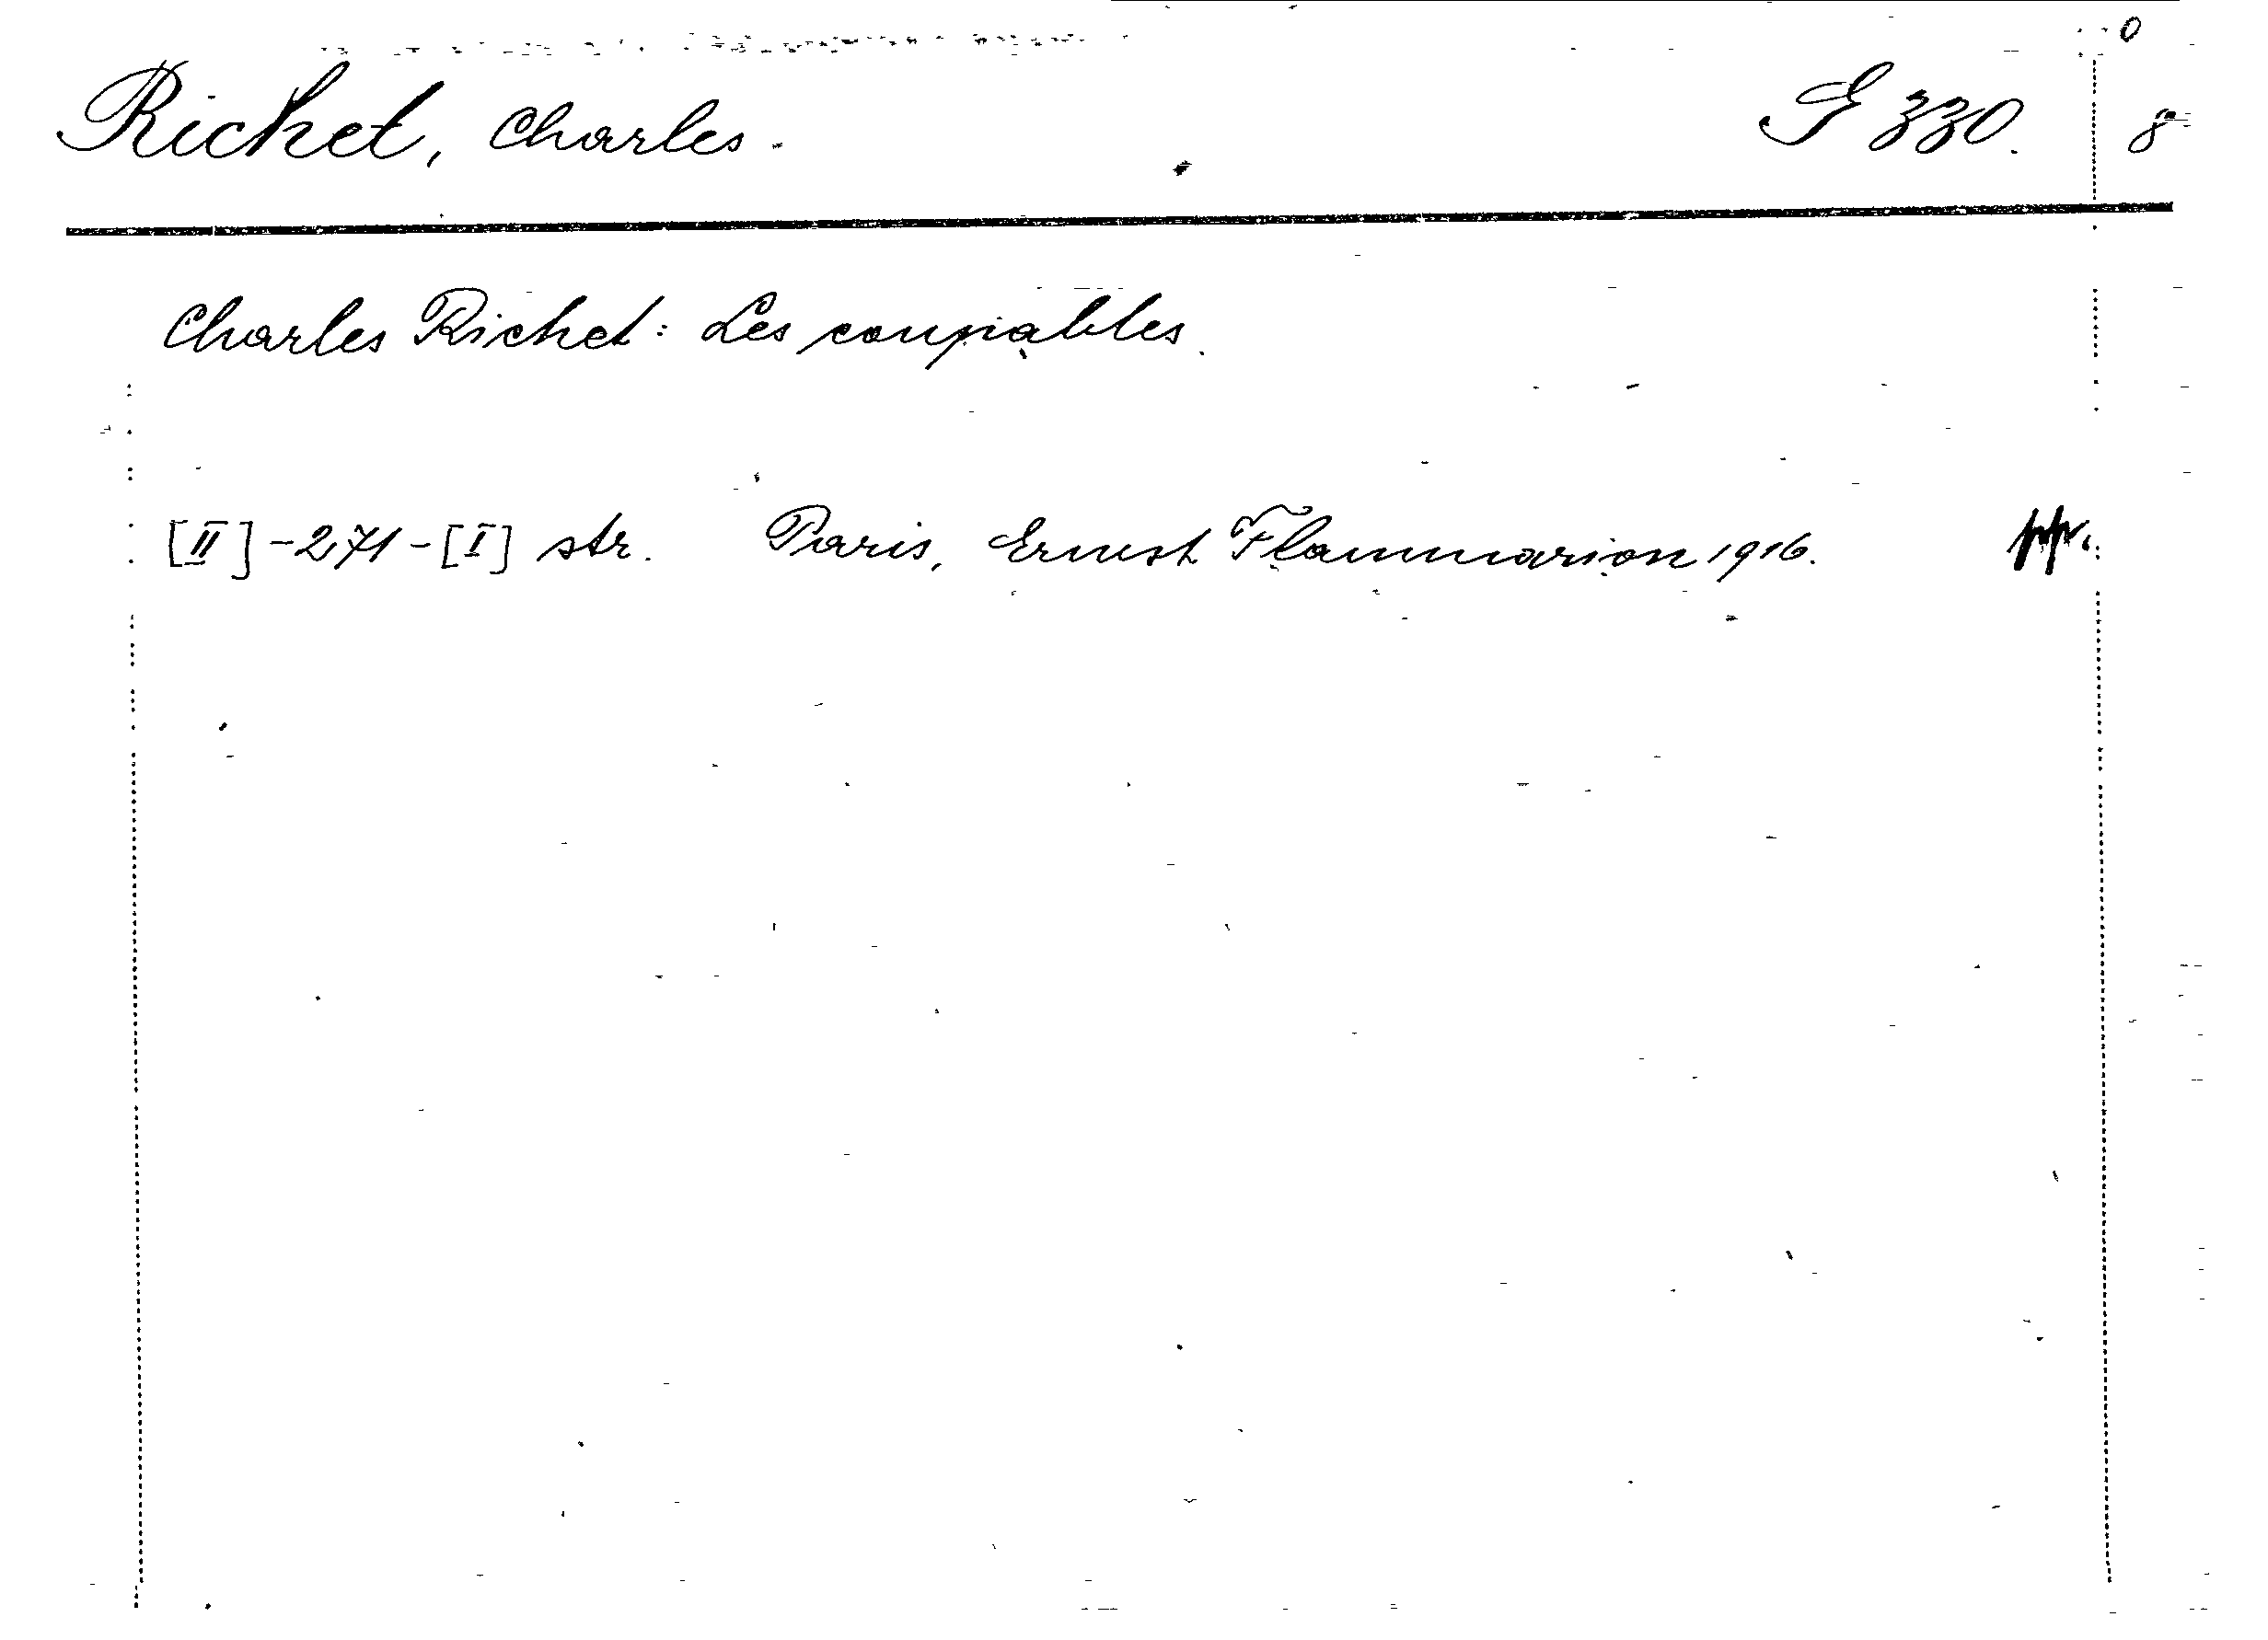 Richet, Charles. G 330. 8°
Charles Richet: Les coupables.
[II]-271-[I] str. Paris, Ernest Flammarion 1916. ppr.